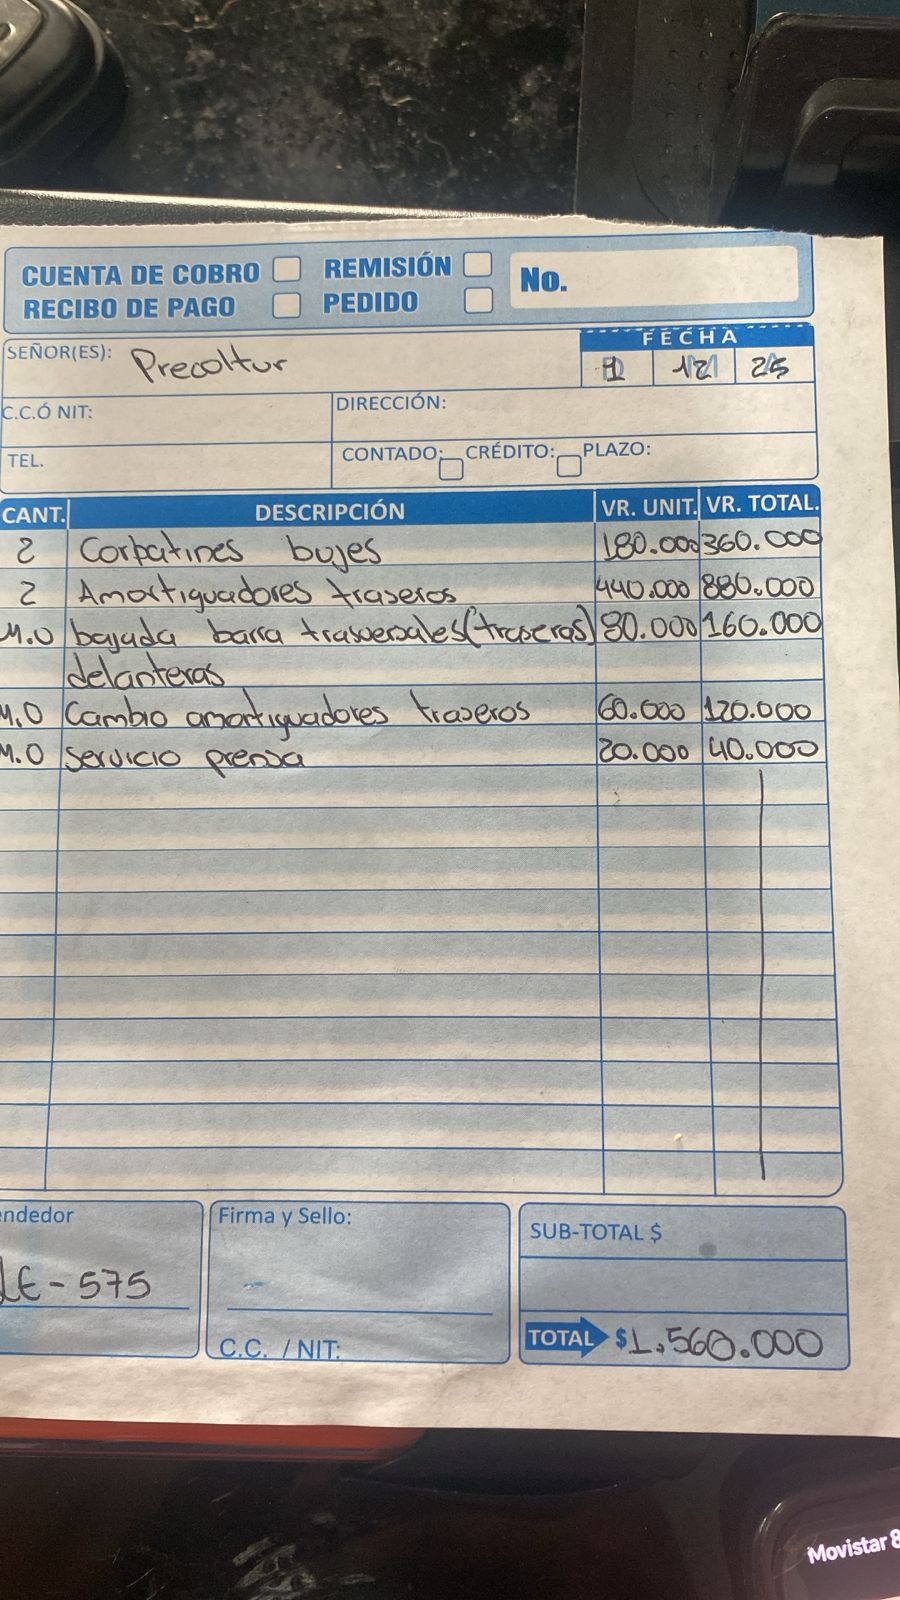 CUENTA DE COBRO REMISIÓN No.
RECIBO DE PAGO PEDIDO
FECHA
SEÑOR(ES): Precoltur
1 12 25
C.C.Ó NIT: DIRECCIÓN:
TEL. CONTADO: CRÉDITO: PLAZO:
CANT. DESCRIPCIÓN VR. UNIT. VR. TOTAL.
2 Corbatines bujes 180.000 360.000
2 Amortiguadores traseros 440.000 880.000
M.O bajada barra trasversales (traseras) 80.000 160.000
delanteras
M.O Cambio amortiguadores traseros 60.000 120.000
M.O Servicio prensa 20.000 40.000
endedor Firma y Sello: SUB-TOTAL $
LE-575
C.C. / NIT: TOTAL $1.560.000
Movistar 8